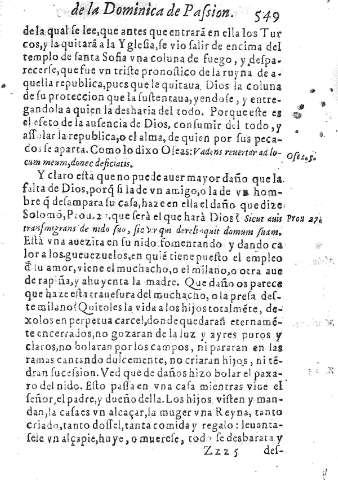 de la Dominica de Passion. 549
de la qual se lee, que antes que entrará en ella los Tur
cos, y la quitará a la Yglesia, se vio salir de encima del
templo de santa Sofia vna coluna de fuego, y despa-
recerse, que fue vn triste pronostico de la ruyna de a-
quella republica, pues que le quitaua Dios la coluna
de su proteccion que la sustentaua, yendose, y entre-
gandola a quien la desharia del todo. Porque este es
el efeto de la ausencia de Dios, consumir del todo, y
assolar la republica, o el alma, de quien por sus peca-
dos se aparta. Como lo dixo Oseas: Vadens reuertar ad lo-
cum meum, donec deficiatis.
Y claro està que no puede auer mayor daño que la
falta de Dios, porq̃ si la de vn amigo, o la de vn hom-
bre q̃ desampara su casa, haze en ella el daño que dize
Solomõ, Prou. 27. que será el que hará Dios? Sicut auis Prou 27.
transmigrans de nido suo, sic vir qui derelinquit domum suam.
Està vna auezita en su nido fomentando y dando ca
lor a los gueuezuelos, en quiẽ tiene puesto el empleo
d̃ su amor, viene el muchacho, o el milano, o otra aue
de rapiña, y ahuyenta la madre. Que daño os parece
que haze esta trauesura del muchacho, o la presa des-
te milano? Quitoles la vida a los hijos totalmẽte, de-
xolos en perpetua carcel, donde quedarañ eternamẽ-
te encerrados, no gozaran de la luz y ayres puros y
claros, no bolaran por los campos, ni pararan en las
ramas cantando dulcemente, no criaran hijos, ni tẽ-
dran sucession. Ved que de daños hizo bolar el paxa-
ro del nido. Esto passa en vna casa mientras viue el
señor, el padre, y dueño della. Los hijos visten y man-
dan, la casa es vn alcaçar, la muger vna Reyna, tanto
criado, tanto dossel, tanta comida y regalo: leuanta-
sele vn alçapie, huye, o muerese, todo se desbarata y
Zzz 5 des-